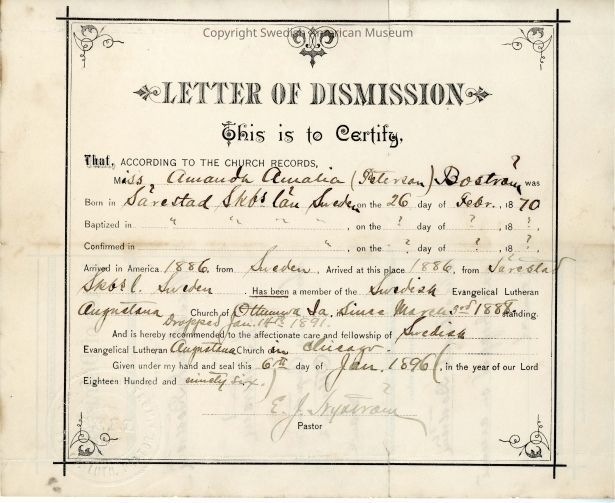 Copyright Swedish American Museum
LETTER OF DISMISSION
This is to Certify,
That, ACCORDING TO THE CHURCH RECORDS,
Miss Amanda Amalia (Peterson) Boström ? was
Born in Särestad Skbs län Sweden on the 26 day of Febr., 1870
Baptized in " " " " , on the ? day of ? , 18 ?
Confirmed in , on the ? day of ? , 18 ?
Arrived in America 1886 from Sweden. Arrived at this place 1886, from Särestad
Skbs l. Sweden. Has been a member of the Swedish Evangelical Lutheran
Augustana Church of Ottumwa Ia, in Since March 3rd 1888 standing.
Dropped Jan. 14th 1891.
And is hereby recommended to the affectionate care and fellowship of Swedish
Evangelical Lutheran Augustana Church in Chicago.
Given under my hand and seal this 6th day of Jan. 1896 (, in the year of our Lord
Eighteen Hundred and ninety six.)
E. J. Nyström
Pastor